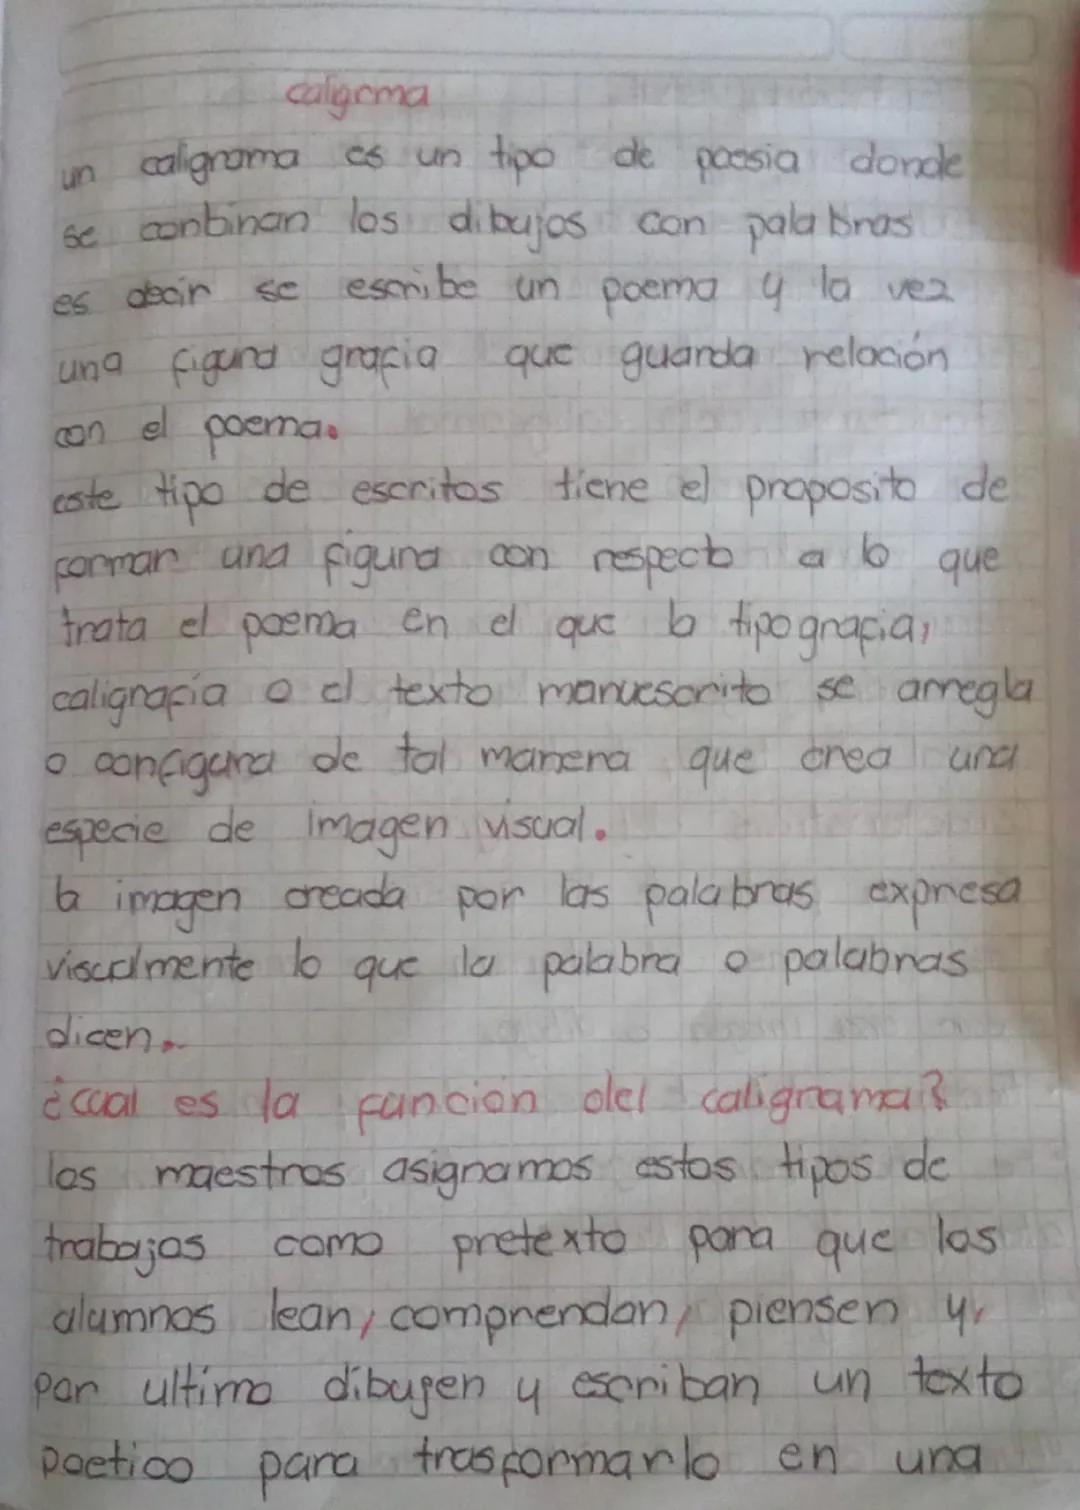 caligrma
un caligrama es un tipo de poesia donde
se conbinan los dibujos con palabras
es decir se escribe un poema y la vez
una figura grafia que guarda relación
con el poema.
este tipo de escritos tiene el proposito de
formar una figura con respecto a lo que
trata el poema en el que la tipografia,
caligrafia o el texto manuescrito se arregla
o configura de tal manera que crea una
especie de imagen visual.
la imagen creada por las palabras expresa
visualmente lo que la palabra o palabras
dicen.
¿cual es la funcion del caligrama?
los maestros asignamos estos tipos de
trabajos como pretexto para que los
alumnos lean, comprendan, piensen y,
por ultimo dibujen y escriban un texto
poetico para trasformarlo en una